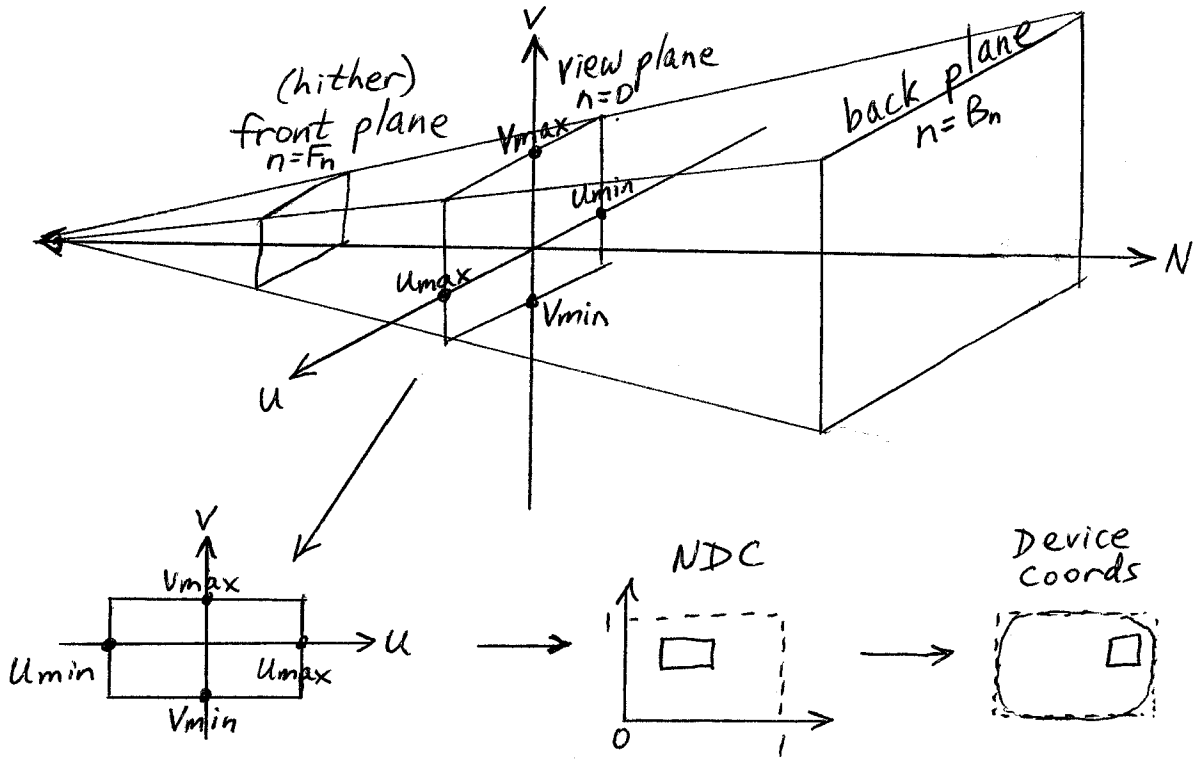 V
view plane
n=0
(hither)
front plane
n=Fn
back plane
n=Bn
Vmax
Umin
N
Umax
Vmin
U
V
Vmax
U
Umin
Umax
Vmin
NDC
1
0
1
Device
Coords